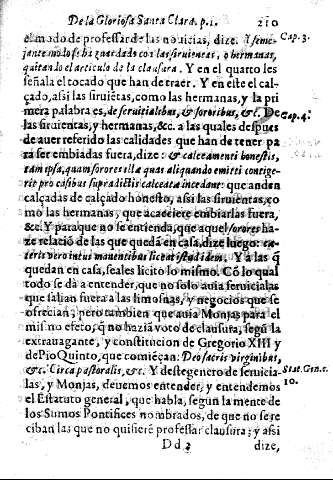 De la Gloriosa Santa Clara. p. 1. 210
el modo de professar de las novicias, dize. Y seme-
jante modo se ha guardado con las siruientas, o hermanas, Cap. 3.
quitando el articulo de la clausura. Y en el quarto les
señala el tocado que han de traer. Y en este el cal-
çado, assi las siruiētas, como las hermanas, y la pri
mera palabra es, de seruitialibus, & sororibus, &c. De Cap. 4.
las siruientas, y hermanas, &c. a las quales despues
de auer referido las calidades que han de tener pa
ra ser embiadas fuera, dize: & calceamenti honestis,
tam ipsa, quam sorores illæ quas aliquando emitti contige-
rit pro casibus supradictis calceatæ incedant: que anden
calçadas de calçado honesto, assi las siruientas, co
mo las hermanas, que acaeciere embiarlas fuera,
&c. Y para que no se entienda, que aquel sorores ha-
ze relació de las que quedá en casa, dize luego: cæ-
teris vero intus manentibus liceat
quedan en casa, seales licito lo mismo. Có lo qual
todo se dà a entender, que no solo auia seruicialas
que salian fuera a las limosnas, y negocios que se
ofrecian; pero tambien que auia Monjas para el
mismo efeto, q no hazia voto de clausura, segū la
extrauagante, y constitucion de Gregorio XIII y
de Pio Quinto, que comiēçan: Deo sacris virginibus,
&c. Circa pastoralis, &c. Y deste genero de seruicia- Stat. Gen. c.
las, y Monjas, deuemos entender, y entendemos 10.
el Estatuto general, que habla, segun la mente de
los Sumos Pontifices nombrados, de que no se re
ciban las que no quisierē professar clausura; y assi
Dd 2 dize,